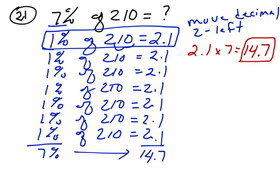 21 7% of 210 = ?
1% of 210 = 2.1
1% of 210 = 2.1
1% of 210 = 2.1
1% of 210 = 2.1
1% of 210 = 2.1
1% of 210 = 2.1
1% of 210 = 2.1
7% → 14.7
move decimal
2 - left
2.1 x 7 = 14.7